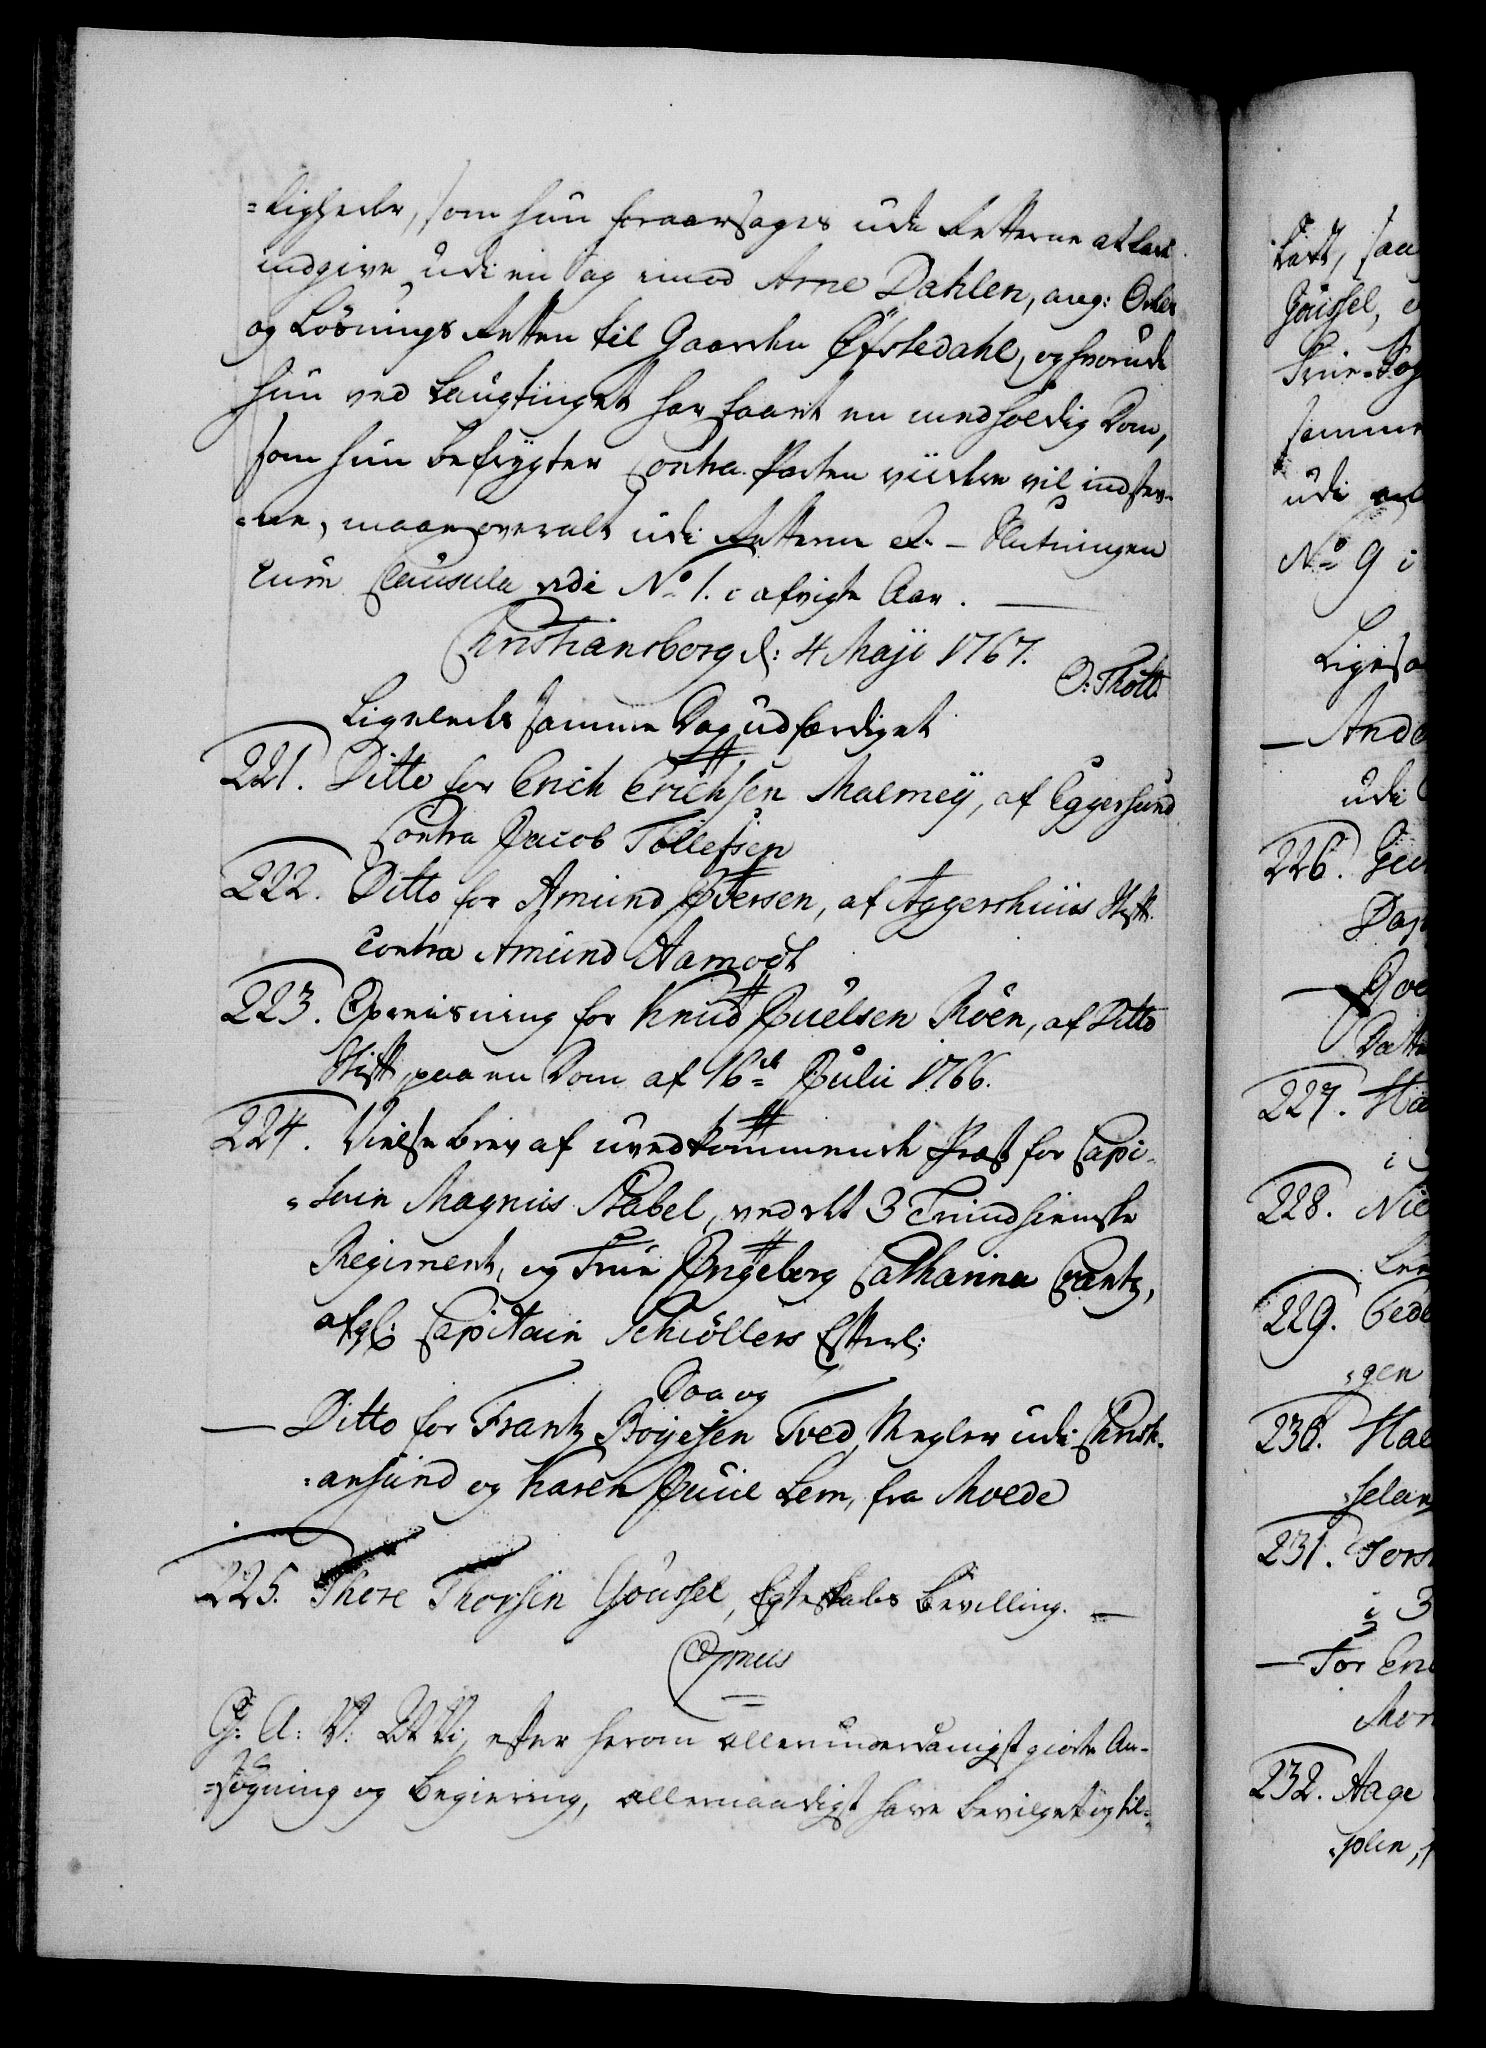 =ligheder, som hun foraarsages udi Retterne at lade
indgive udi en Sag imod Arne Dahlen, ang: Odels
og Løsnings Retten til Gaarden Øfstedahl, og hvorudi
hun ved Laugtinget har faaet en medholdig Dom,
som hun befrygter Contra-Parten viidere vil indstev-
=ne, maae overalt udi Retterne &c. – Slutningen
cum Clausula vide No 1. i afvigte Aar.
Christiansborg d: 4 Maji 1767.
O: Thott
Ligeledes samme Dag udfærdiget
221. Ditto for Erich Erichsen Malmeÿ, af Eggersund
Contra Jacob Tollefsen
222. Ditto for Amund Itersen, af Aggershuus Stift.
contra Amund Aamodt
223. Opreisning for Knud Juelsen Roen, af Ditto
Stift, paa en Dom af 16de Julii 1766.
224. Vielse brev af uvedkommende Præst for Capi-
=tain Magnus Stabel, ved det 3 Trundhiemske
Regiment, og Frue Ingeborg Catharina Crantz,
afg: Capitain Schiøllers Efterl:
Daa og
— Ditto for Frantz Boyesen Tved, Megler udi Christi-
=ansund og Karen Juul Lem, fra Moede
225. Thore Thorsen Goussel, Egteskabs Bevilling. —
C7mus
G: A: V: At Vi, efter herom allerunderdanigst giorte An-
=søgning og Begiering, allernaadigst have bevilget og til-
latt, saa
Goussel, e
Frue-Sog
samme
udi
No 9 i
Ligesaa
— Ande
udi
226. Gun
Dat
227. Ha
i
228. Nie
229. Pede
=gen
230. Hal
=selan
231. Tors
i 3
— For Eri
Mor
232. Aage
=plen,